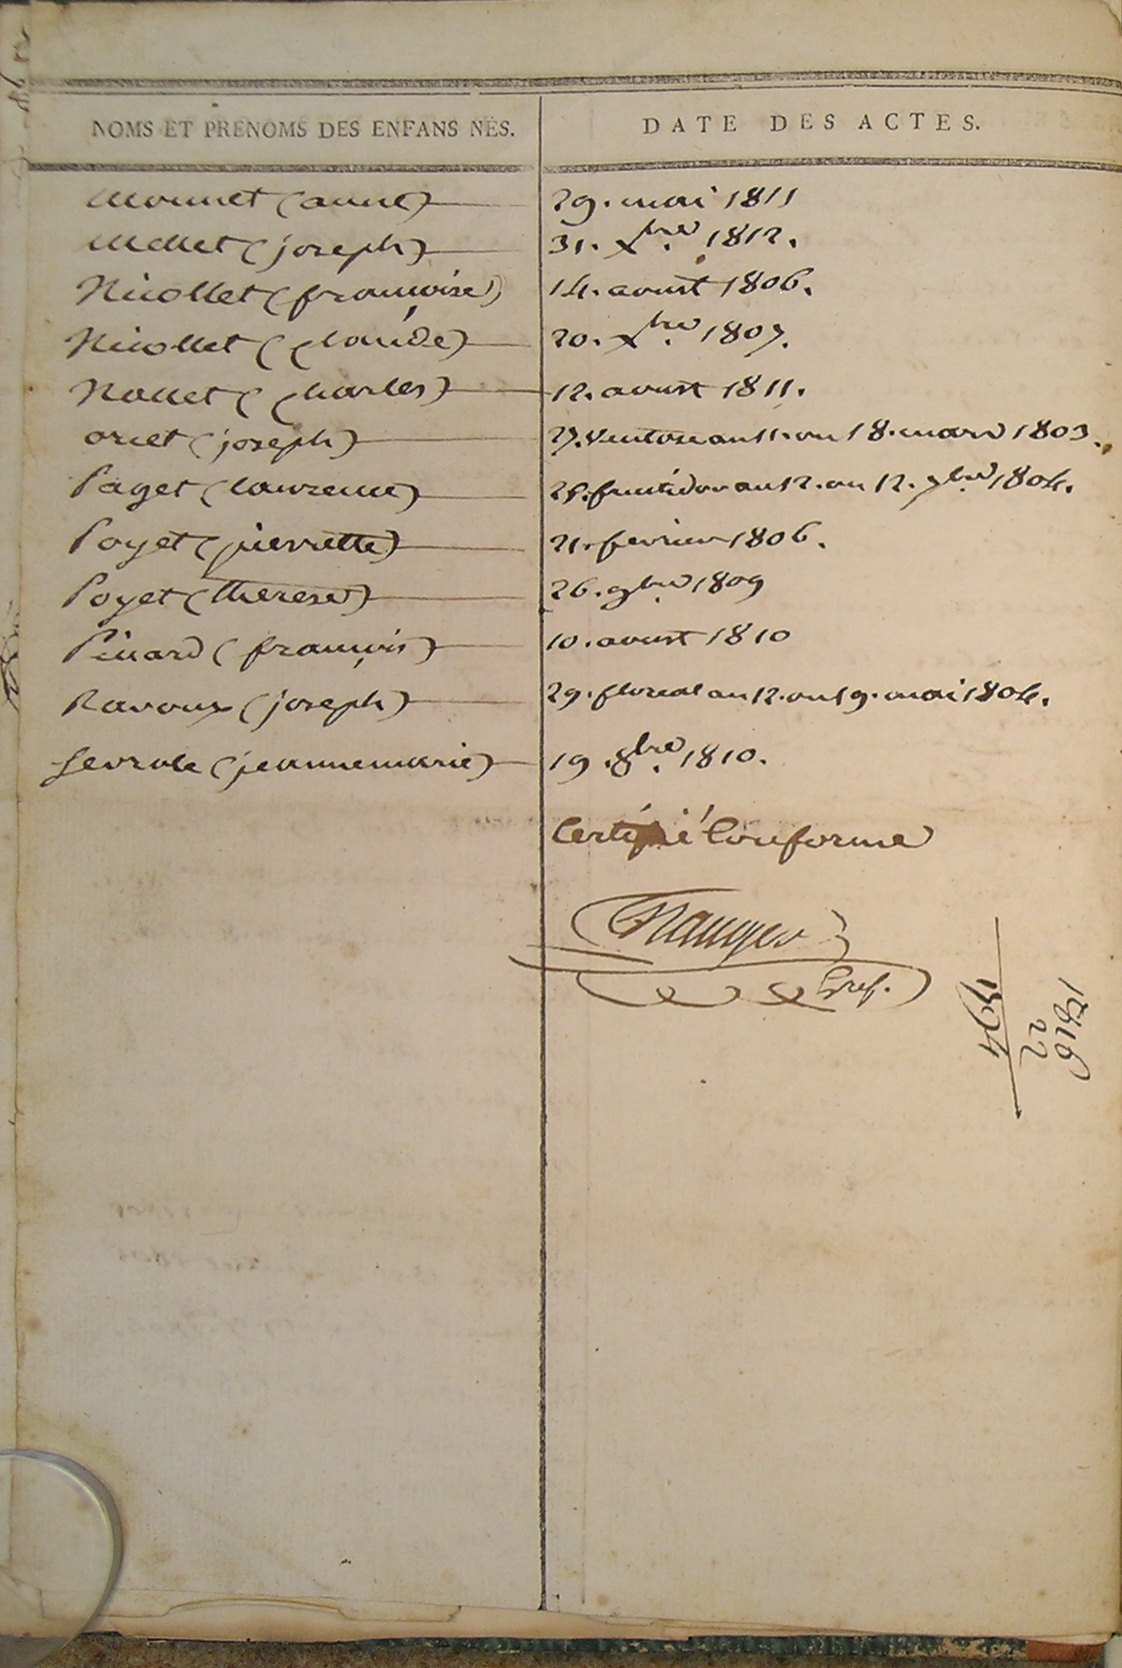 NOMS ET PRENOMS DES ENFANS NÉS. DATE DES ACTES.
Monnet (anne) 29. mai 1811
Mellet (joseph) 31. Xbre. 1812.
Nicollet (françoise) 14. aoust 1806.
Nicollet (Claude) 20. Xbre. 1807.
Nallet (Charles) 12. aoust 1811.
oriet (joseph) 27. Ventose an 11. ou 18. mars 1803.
Paget (laurence) 25. fructidor an 12. ou 12. 7bre 1804.
Poyet (pierrette) 21. fevrier 1806.
Poyet (therese) 26. 9bre. 1809
Pinard (françois) 10. aoust 1810
Ravoux (joseph) 29. floreal an 12. ou 19. mai 1804.
(jeanne marie) 19. 8bre. 1810.
Certifié Conforme
Gref.
1816
22
1794